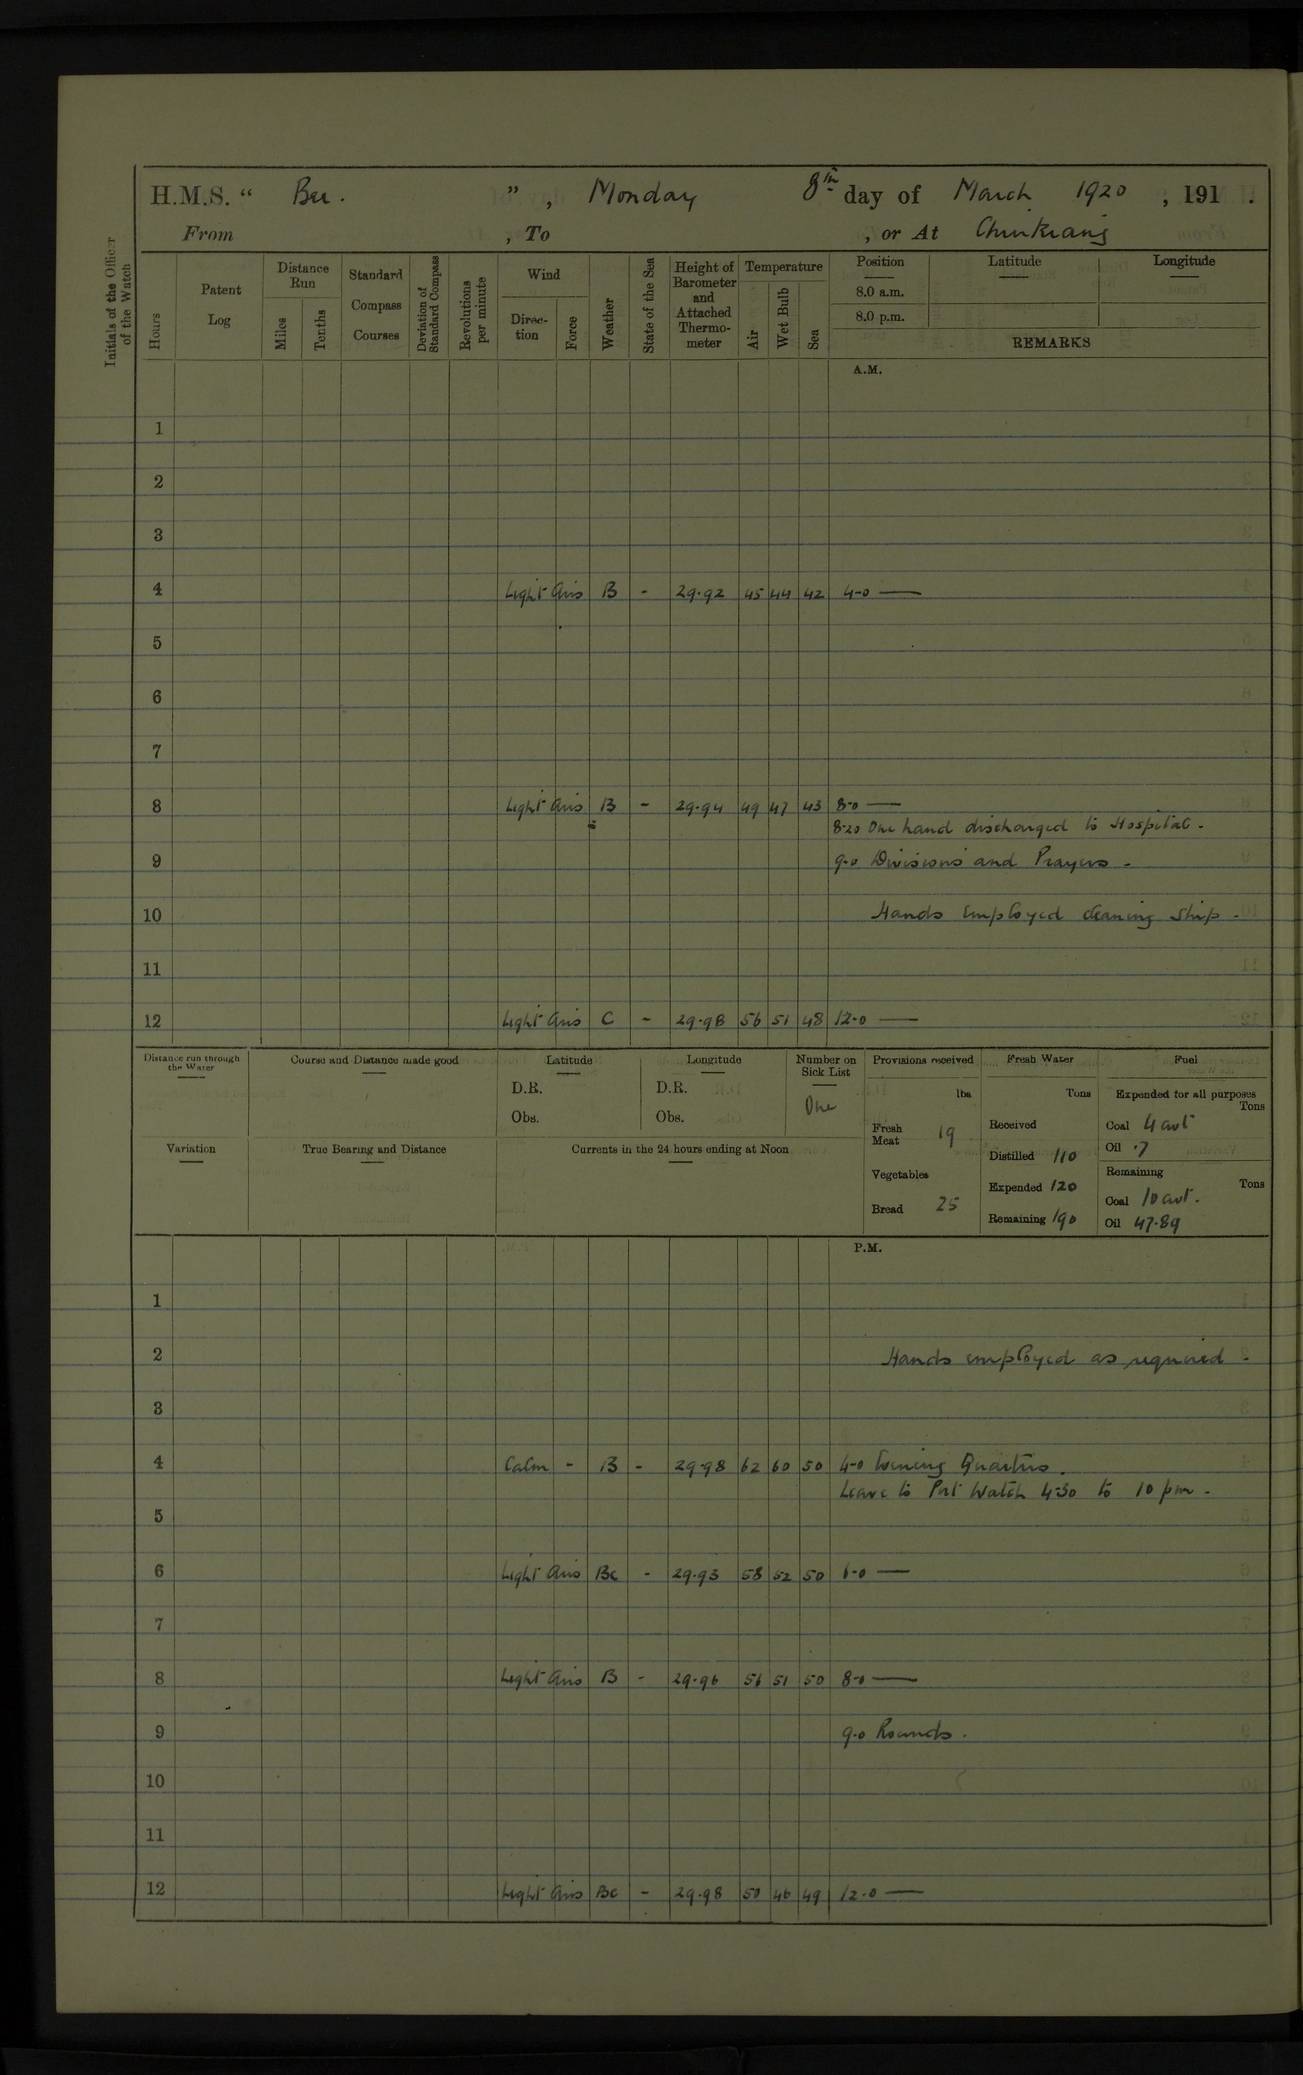 H.M.S. “ Bee. ” , Monday 8th day of March 1920 , 191 .
From , To , or At Chinkiang
Initials of the Officer of the Watch
Hours
Patent Log
Distance Run
Miles
Tenths
Standard Compass Courses
Deviation of Standard Compass
Revolutions per minute
Wind
Direction
Force
Weather
State of the Sea
Height of Barometer and Attached Thermometer
Temperature
Air
Wet Bulb
Sea
Position
8.0 a.m.
8.0 p.m.
Latitude
Longitude
REMARKS
A.M.
1
2
3
4 Light Airs B - 29.92 45 44 42 4-0 —
5
6
7
8 Light Airs B - 29.94 49 47 43 8-0 —
8-20 One hand discharged to Hospital -
9 9-0 Divisions and Prayers -
10 Hands employed cleaning ship -
11
12 Light Airs C - 29.98 56 51 48 12-0 —
Distance run through the Water
Course and Distance made good
Latitude
D.R.
Obs.
Longitude
D.R.
Obs.
Number on Sick List
One
Provisions received
lbs
Fresh Meat 19
Vegetables
Bread 25
Fresh Water
Tons
Received
Distilled 110
Expended 120
Remaining 190
Fuel
Expended for all purposes
Tons
Coal 4 cwt
Oil .7
Remaining
Tons
Coal 10 cwt.
Oil 47.89
Variation
True Bearing and Distance
Currents in the 24 hours ending at Noon
P.M.
1
2 Hands employed as required -
3
4 Calm - B - 29.98 62 60 50 4-0 Evening Quarters.
Leave to Port Watch 4-30 to 10 pm -
5
6 Light Airs Bc - 29.93 58 52 50 6-0 —
7
8 Light Airs B - 29.96 56 51 50 8-0 —
9 9-0 Rounds.
10
11
12 Light Airs Bc - 29.98 50 46 49 12-0 —